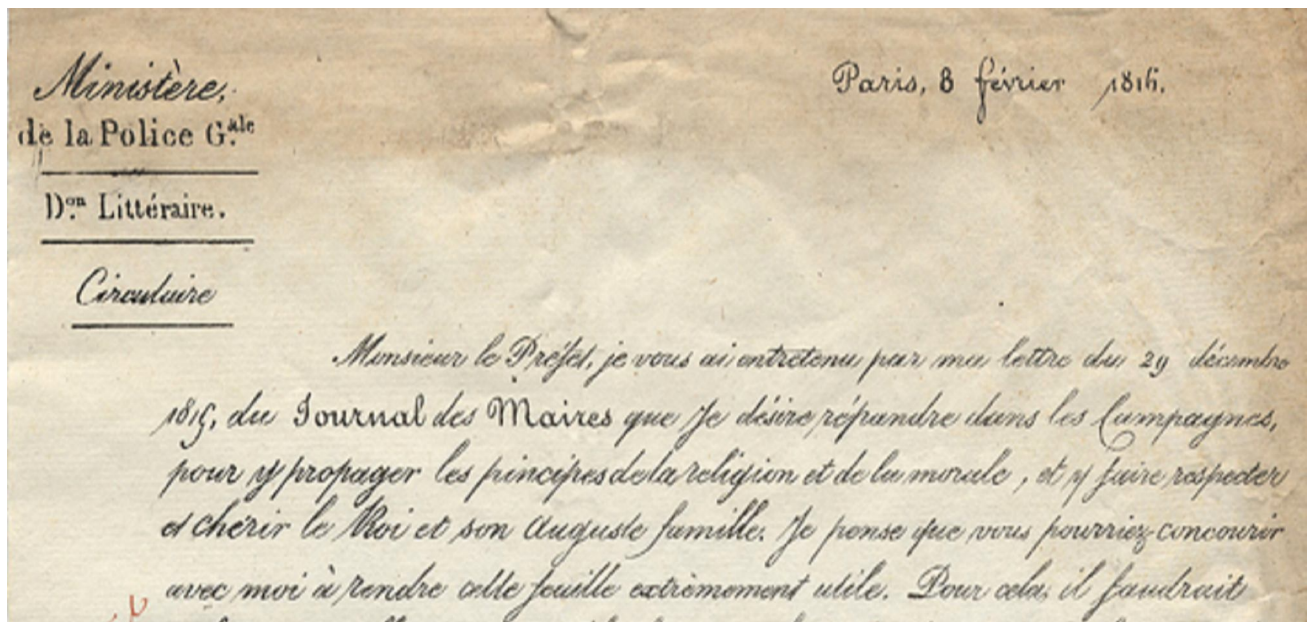 Ministère,
de la Police G.ale
D.on Littéraire.
Circulaire
Paris, 8 février 1816.
Monsieur le Préfet, je vous ai entretenu par ma lettre du 29 décembre
1815, du Journal des Maires que Je désire répandre dans les Campagnes,
pour y propager les pincipes de la religion et de la morale, et y faire respecter
et chérir le Roi et son Auguste famille. Je pense que vous pourriez concourir
avec moi à rendre cette feuille extrêmement utile. Pour cela, il faudrait